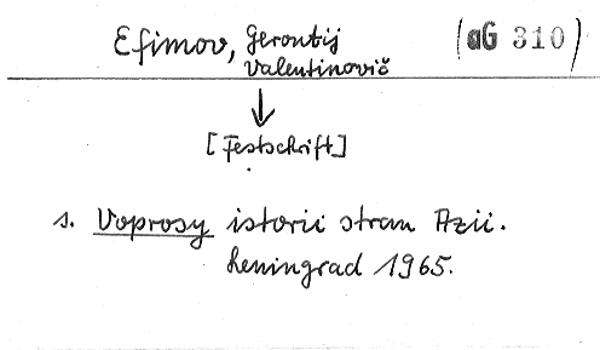 Efimov, Gerontij (aG 310)
Valentinovič
↓
[Festschrift]
s. Voprosy istorii stran Azii.
Leningrad 1965.